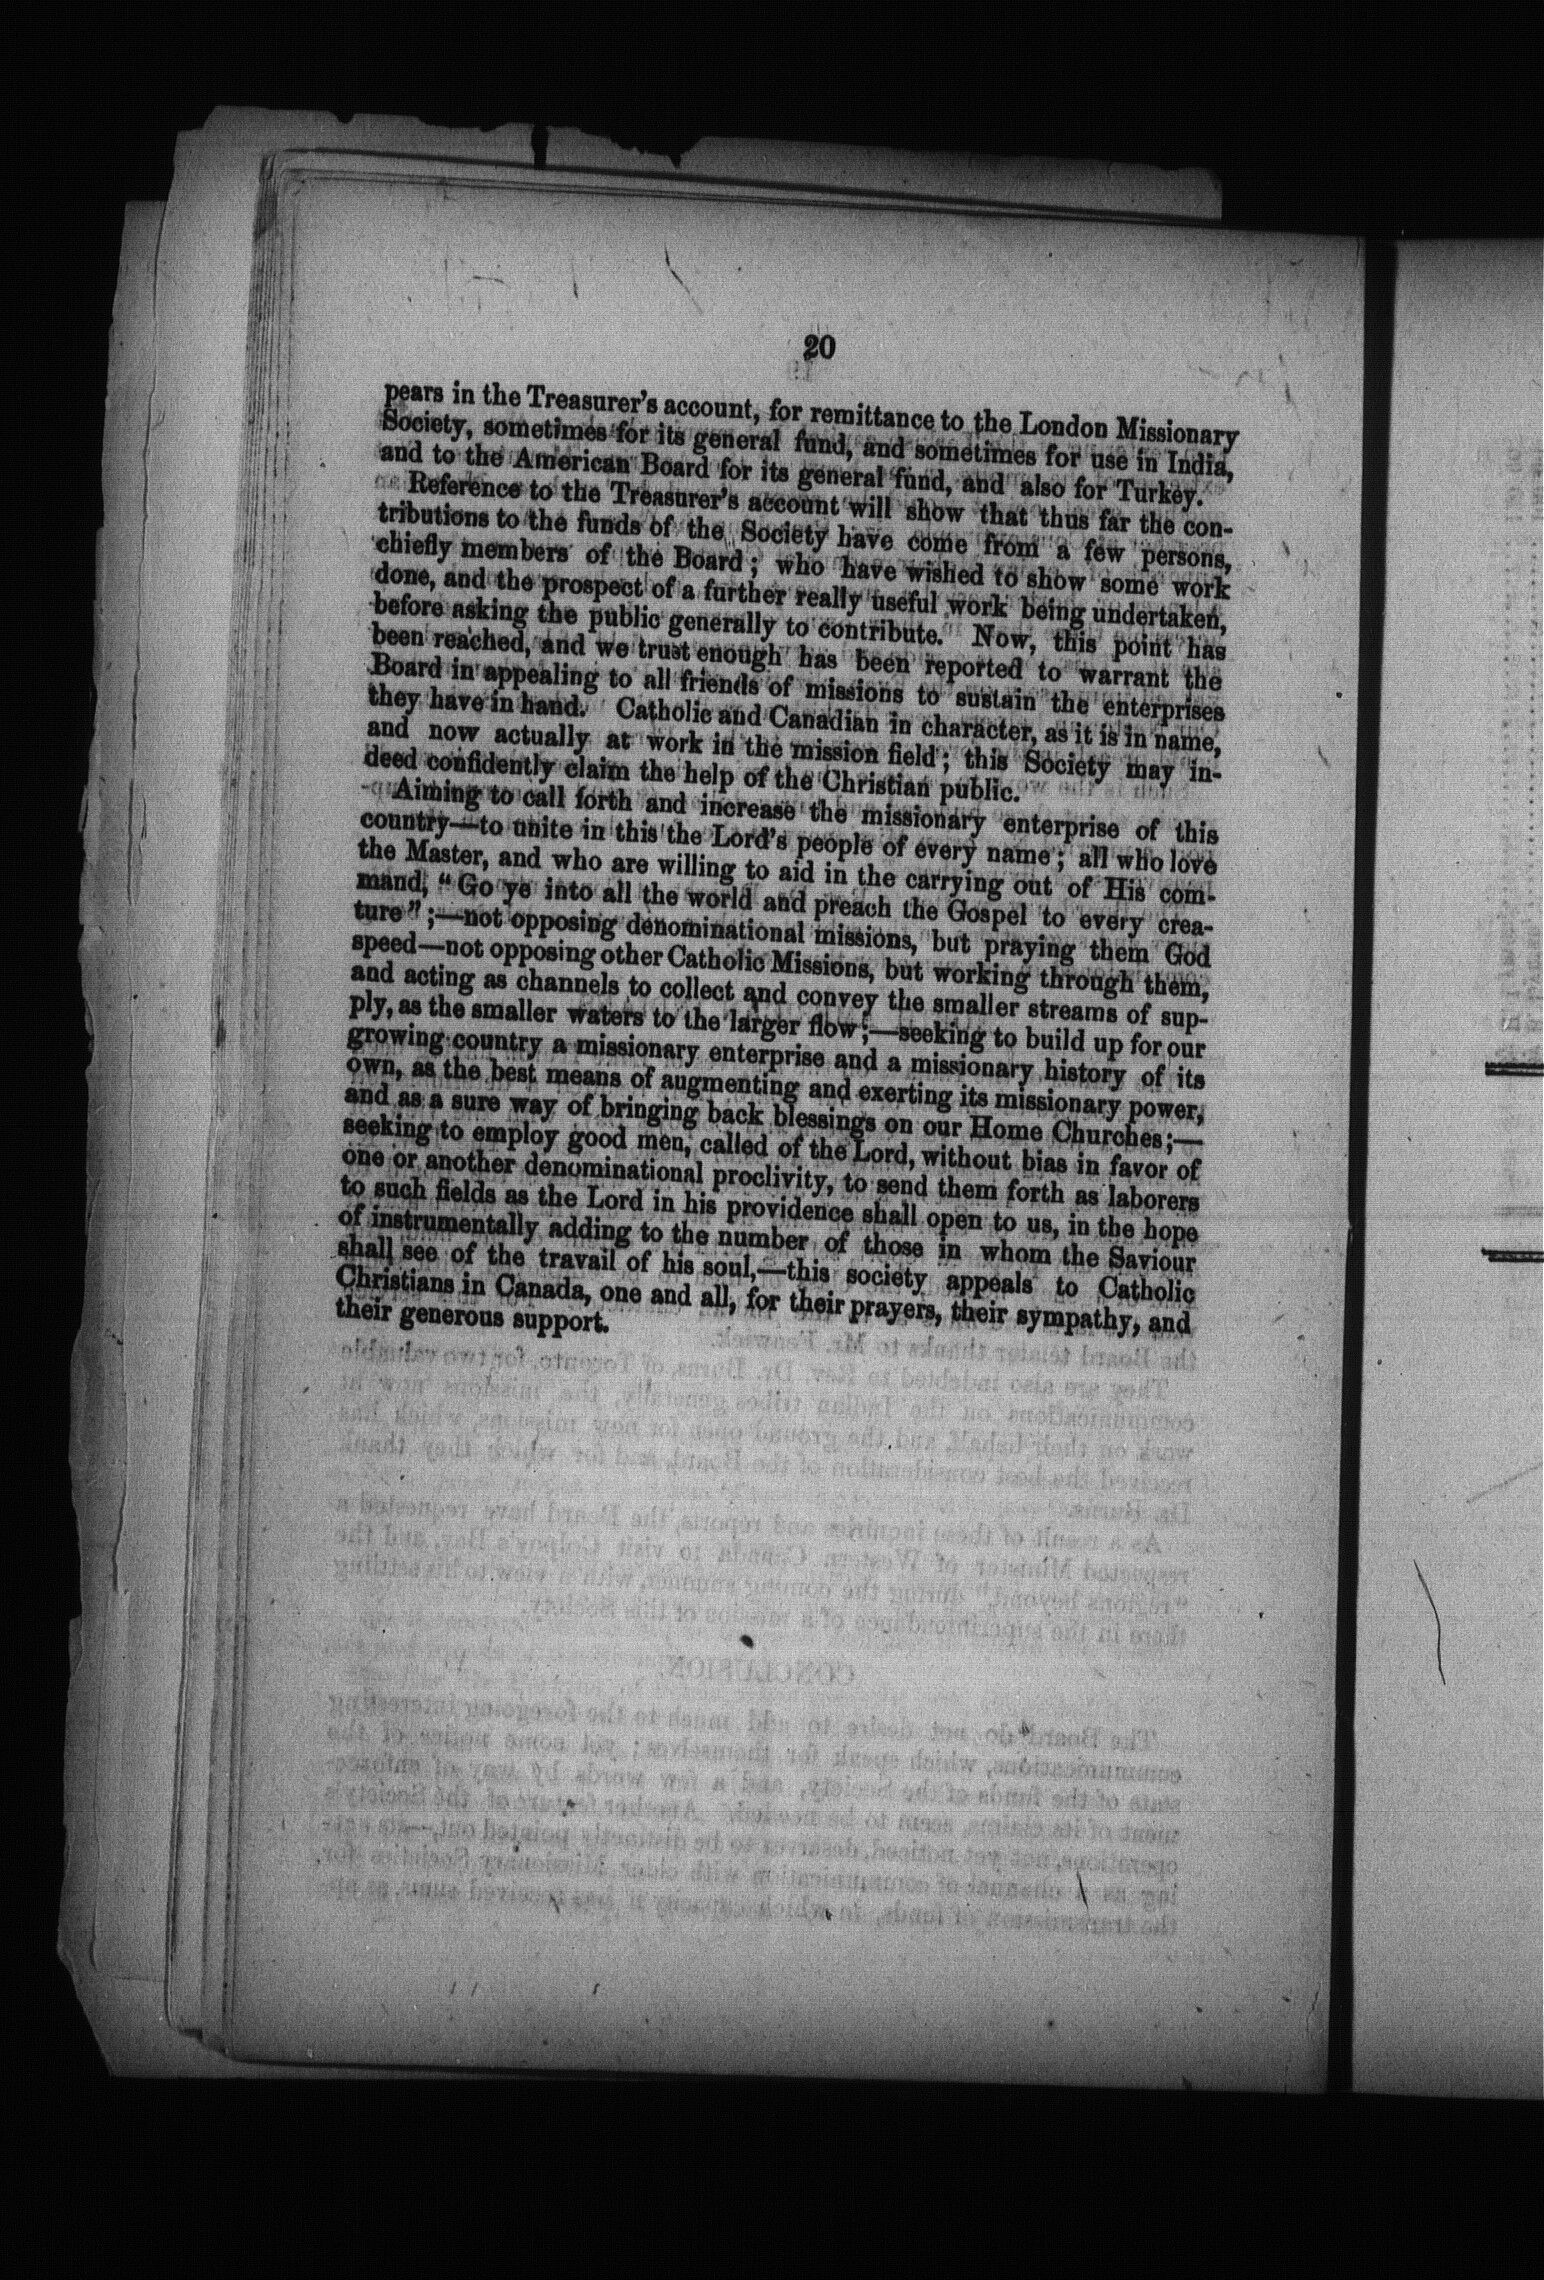 20
pears in the Treasurer's account, for remittance to the London Missionary
Society, sometimes for its general fund, and sometimes for use in India,
and to the American Board for its general fund, and also for Turkey.
Reference to the Treasurer's account will show that thus far the con-
tributions to the funds of the Society have come from a few persons,
chiefly members of the Board; who have wished to show some work
done, and the prospect of a further really useful work being undertaken,
before asking the public generally to contribute. Now, this point has
been reached, and we trust enough has been reported to warrant the
Board in appealing to all friends of missions to sustain the enterprises
they have in hand. Catholic and Canadian in character, as it is in name,
and now actually at work in the mission field; this Society may in-
deed confidently claim the help of the Christian public.
Aiming to call forth and increase the missionary enterprise of this
country—to unite in this the Lord's people of every name; all who love
the Master, and who are willing to aid in the carrying out of His com-
mand, "Go ye into all the world and preach the Gospel to every crea-
ture";—not opposing denominational missions, but praying them God
speed—not opposing other Catholic Missions, but working through them,
and acting as channels to collect and convey the smaller streams of sup-
ply, as the smaller waters to the larger flow;—seeking to build up for our
growing country a missionary enterprise and a missionary history of its
own, as the best means of augmenting and exerting its missionary power,
and as a sure way of bringing back blessings on our Home Churches;—
seeking to employ good men, called of the Lord, without bias in favor of
one or another denominational proclivity, to send them forth as laborers
to such fields as the Lord in his providence shall open to us, in the hope
of instrumentally adding to the number of those in whom the Saviour
shall see of the travail of his soul,—this society appeals to Catholic
Christians in Canada, one and all, for their prayers, their sympathy, and
their generous support.